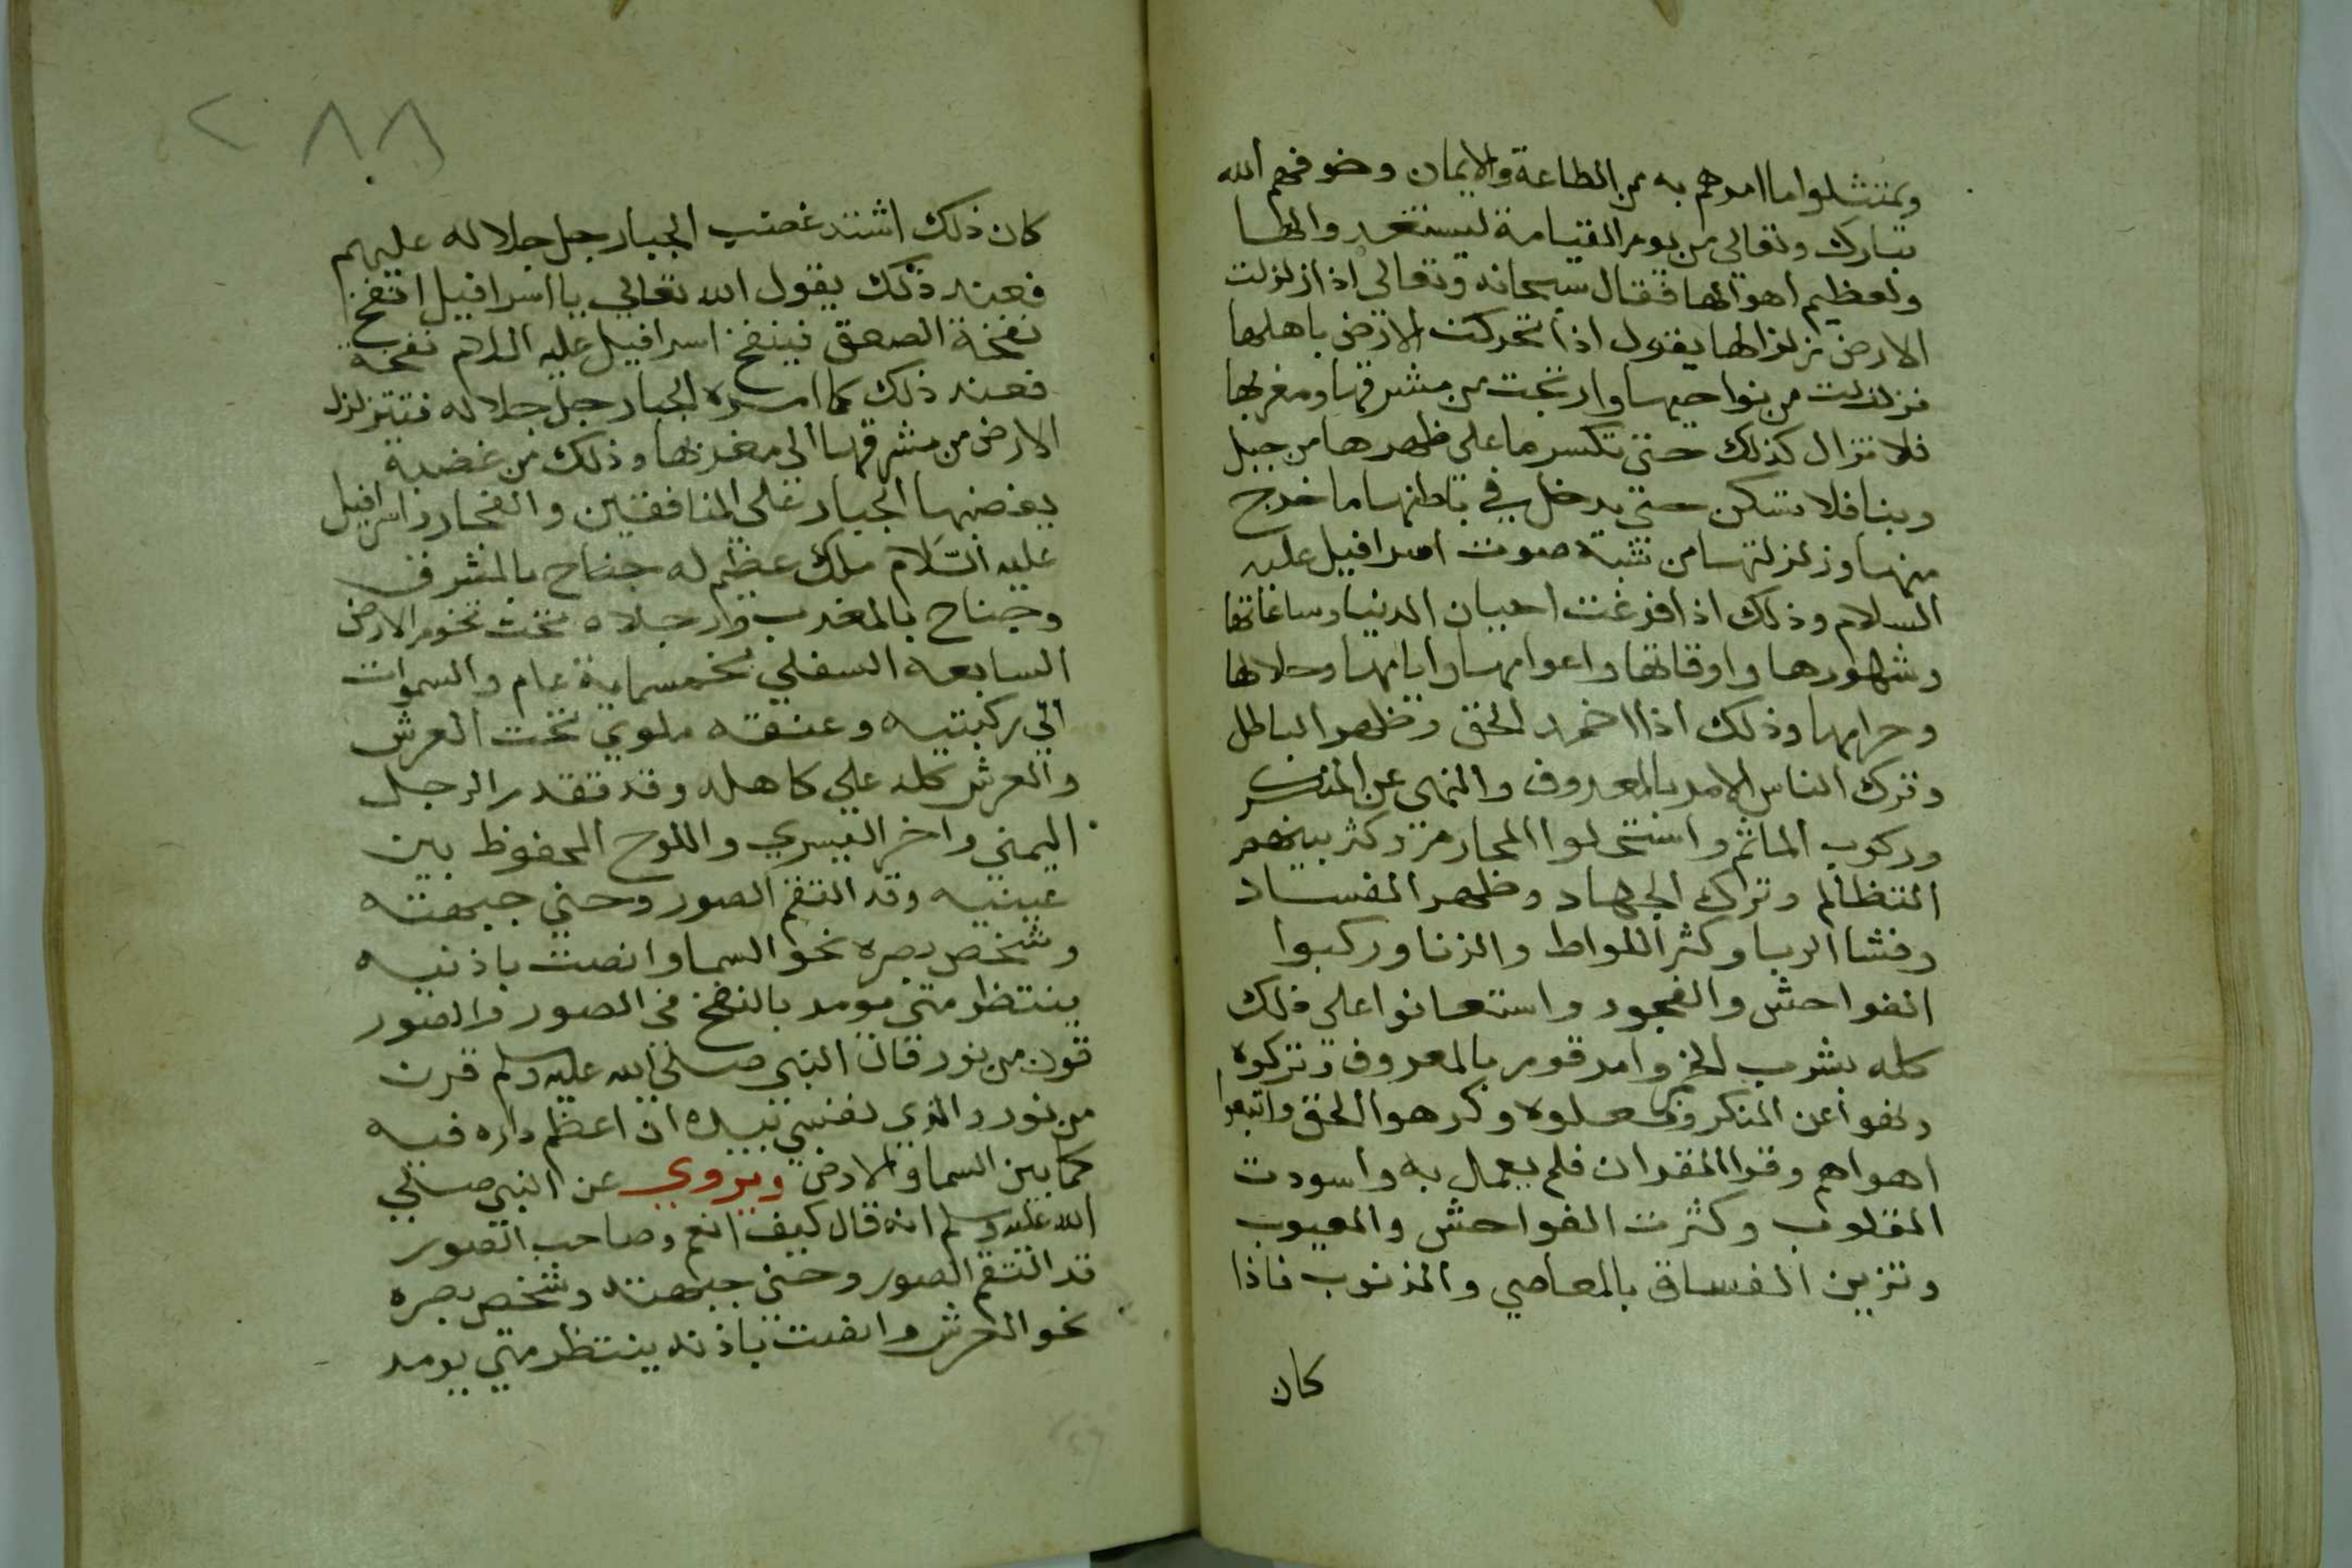 ويمتثلوا ما امرهم به من الطاعة والايمان وخوفهم الله
تبارك وتعالى من يوم القيامة ليستعدوا لها
ولعظيم اهوالها فقال سبحانه وتعالى اذا زلزلت
الارض زلزالها يقول اذا تحركت الارض باهلها
فزلزلت من نواحيها وارتجت من مشرقها ومغربها
فلا تزال كذلك حتى تكسر ما على ظهرها من جبل
وبنا فلا تسكن حتى يدخل في باطنها ما خرج
منها وزلزلتها من صوت اسرافيل عليه
السلام وذلك اذا فرغت احيان الدنيا وساعاتها
وشهورها واوقاتها واعوامها وايامها وحلالها
وحرامها وذلك اذا اخمد الحق وظهر الباطل
وترك الناس الامر بالمعروف والنهي عن المنكر
وركوب الماثم واستحلوا المحارم وكثر بينهم
التظالم وترك الجهاد وظهر الفساد
وفشا الربا وكثر اللواط والزنا وركبوا
الفواحش والفجور واستعانوا على ذلك
كله بشرب الخمر وامر قوم بالمعروف وتركوه
ونهوا عن المنكر وفعلوه وكرهوا الحق واتبعوا
اهواهم وقرا القران فلم يعمل به واسودت
القلوب وكثرت الفواحش والعيوب
وتزين الفساق بالمعاصي والذنوب فاذا
كان
٢٨٨
كان ذلك اشتد غضب الجبار جل جلاله عليهم
فعند ذلك يقول الله تعالي يا اسرافيل انفخ
نفخة الصعق فينفخ اسرافيل عليه السلام نفخة
فعند ذلك كما امره الجبار جل جلاله فتتزلزل
الارض من مشرقها الى مغربها وذلك من غضبة
يغضبها الجبار على المنافقين والفجار واسرافيل
عليه السلام ملك عظيم له جناح بالمشرق
وجناح بالمغرب وارجلاه تحت تخوم الارض
السابعة السفلي بخمسماية عام والسموات
الي ركبتيه وعنقه ملوي تحت العرش
والعرش كله على كاهله وقد قدر الرجل
اليمني واخر اليسري واللوح المحفوظ بين
عينيه وقد التقم الصور وحني جبهته
وشخص بصره نحو السما وانصت باذنيه
ينتظر متى يومر بالنفخ في الصور والصور
قرن من نور قال النبي صلى الله عليه وسلم قرن
من نور والذي نفسي بيده ان اعظم داره فيه
كما بين السما والارض ويروي عن النبي صلي
الله عليه وسلم انه قال كيف انعم وصاحب الصور
قد التقم الصور وحنى جبهته وشخص بصره
نحو العرش وانصت باذنه ينتظر متي يومر